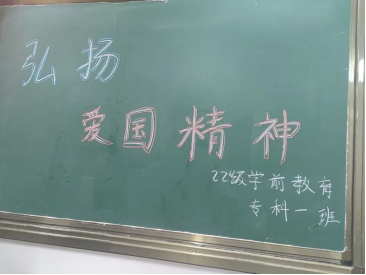 弘扬
爱国精神
22级学前教育
专科一班